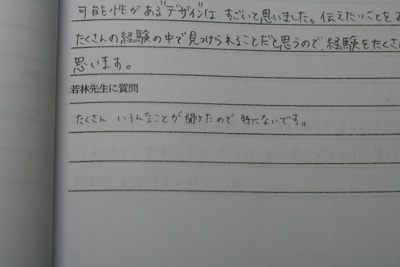 可能性がある"デザイン"は すごいと思いました。伝えたいことを
たくさんの経験の中で見つけられることだと思うので、経験をたくさ
思います。
若林先生に質問
たくさん いろんなことが聞けたので 特にないです。